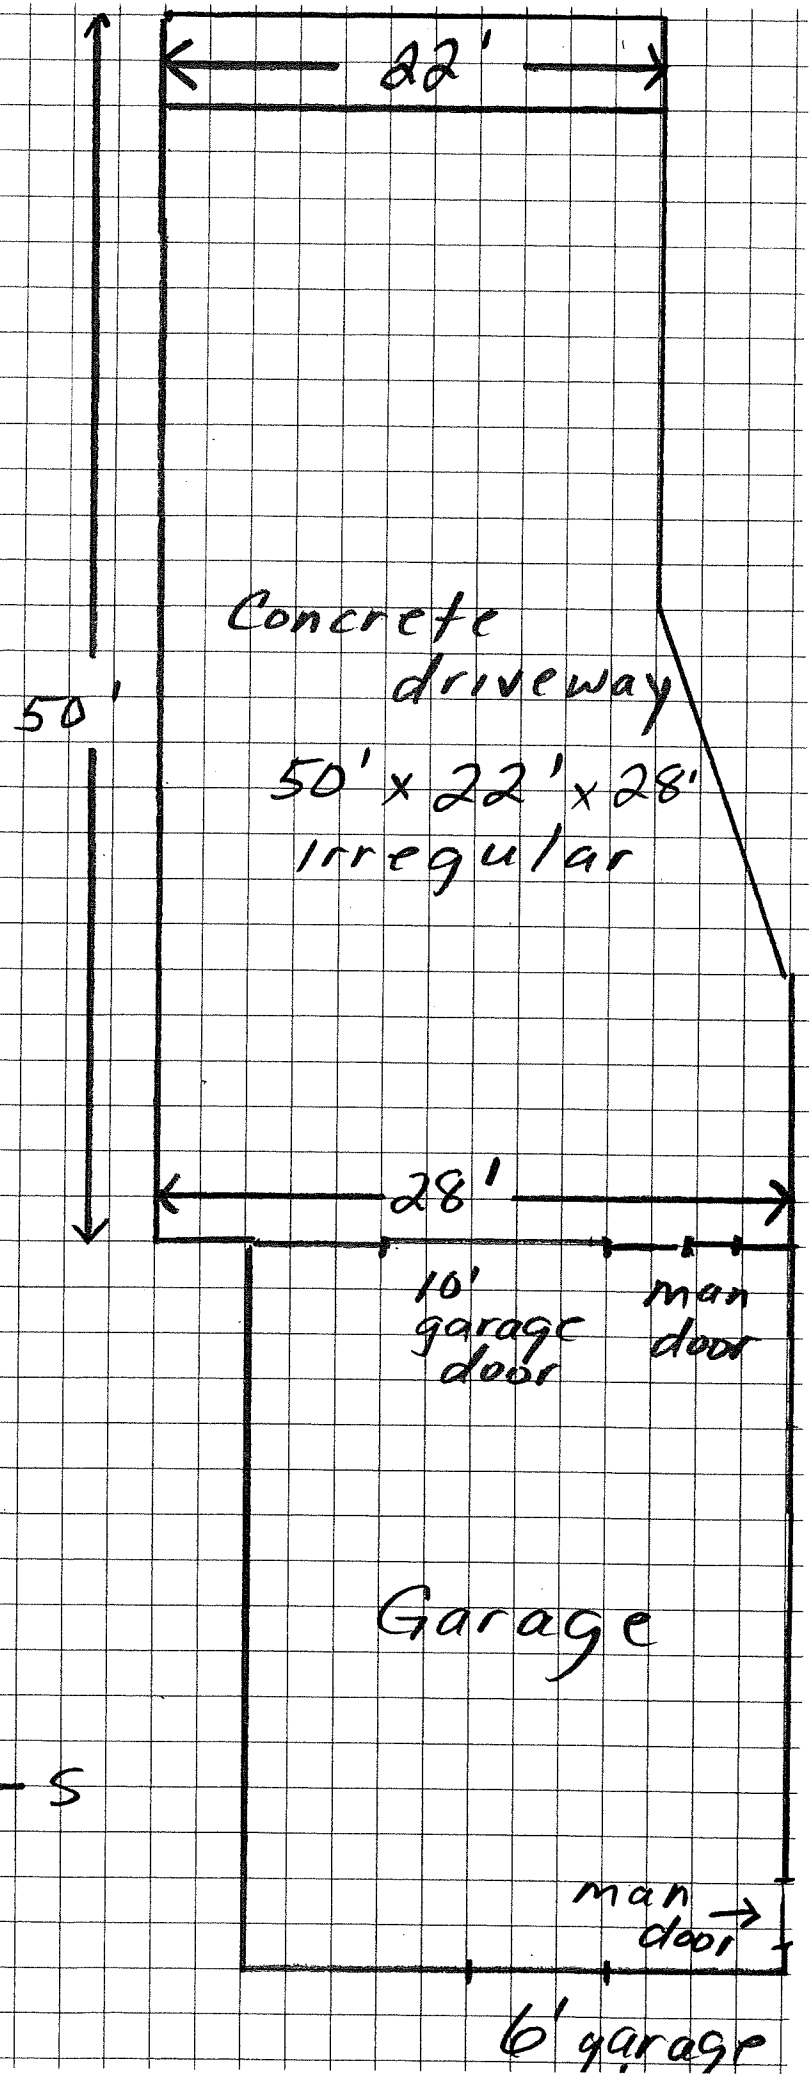 22'
Concrete
driveway
50'
50' x 22' x 28'
irregular
28'
10'
garage
door
man
door
Garage
S
man
door
6' garage